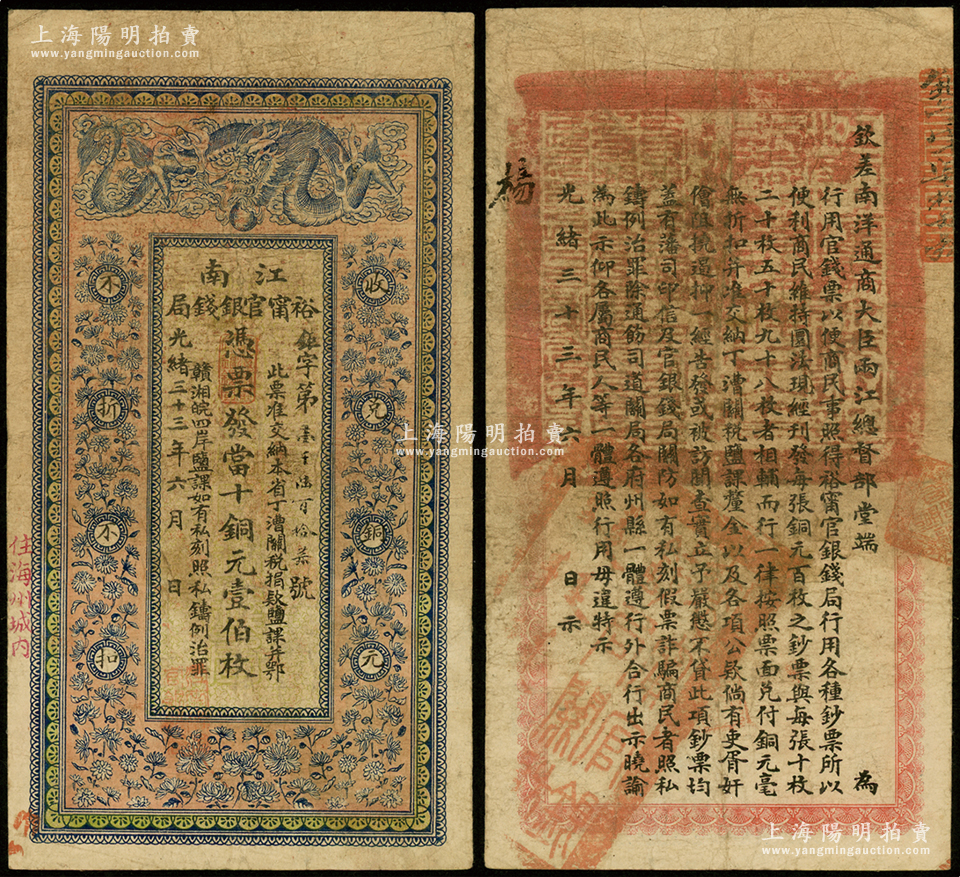 上海陽明拍賣
www.yangmingauction.com
江南
裕甯官銀錢局
鎮字第壹千陆百拾柒號
憑票發當十銅元壹佰枚
此票准交納本省丁漕關稅捐款鹽課并鄂
贛湘皖四岸鹽課如有私刻照私鑄例治罪
光緒三十三年六月 日
收兌銅元
不折不扣
住海州城内
上海陽明拍賣
www.yangmingauction.com
上海陽明拍賣
www.yangmingauction.com
欽差南洋通商大臣兩江總督部堂端 為
行用官錢票以便商民事照得裕甯官銀錢局行用各種鈔票所以
便利商民維持圜法現經刊發每張銅元百枚之鈔票與每張十枚
二十枚五十枚九十八枚者相輔而行一律按照票面兌付銅元毫
無折扣并准交納丁漕關稅鹽課釐金以及各項公欵倘有吏胥奸
儈阻撓遏抑一經告發或被訪聞查實立予嚴懲不貸此項鈔票均
蓋有藩司印信及官銀錢局關防如有私刻假票詐騙商民者照私
鑄例治罪除通飭司道關局各府州縣一體遵行外合行出示曉諭
為此示仰各屬商民人等一體遵照行用毋違特示
光緒三十三年六月 日示
楊
上海陽明拍賣
www.yangmingauction.com